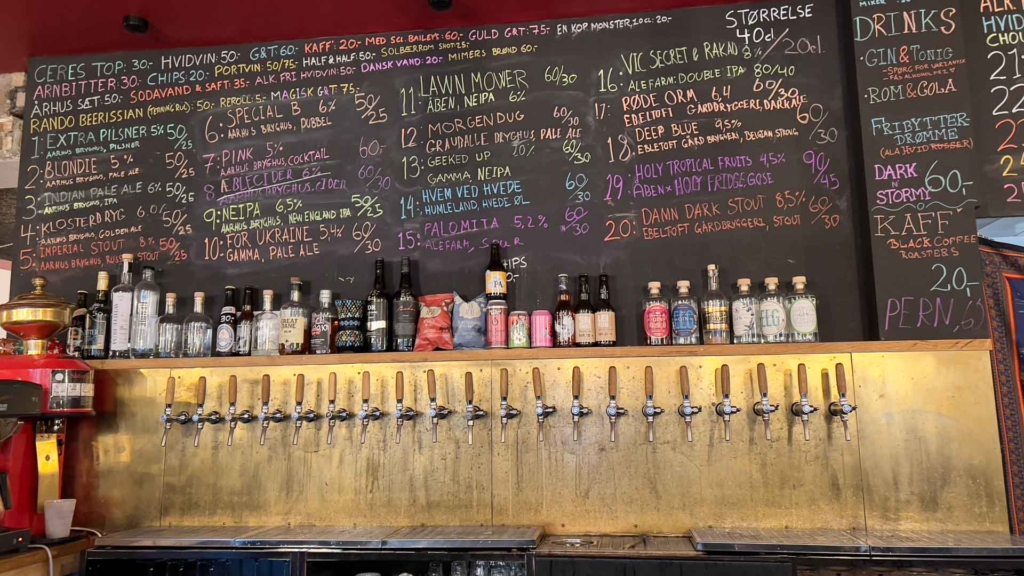 CERES TOP: 30.- HVIDVIN: 50.- G&T: 60.- KAFF: 20.- MED SCI. BAILEY: 60.- GULD G&T: 75.- EN KOP MONSTER, 10cl: 20.-
ARNBITTER: 20.- CHIPS 20.- PORTVIN: 50/75 HALF & HALF: 50.- SOLBERROM SHOTZ 25
ÅRHUS SÆT: 50.- SODAVAND & SAFT: 35.- ALK. FRI HVIDVIN: 50.- DANSK VAND: 20.- MIMERS BRØND 60.-
RANDO BEERISSIAN REROLL: 5.- MAGISK GÆT 75.-
1: EXTRA PILSNER 5% 50/25
AARHUS BRYGHUS, PILSNER
2: BLONDIE 5% 50/25
AARHUS BRYGHUS, PALE ALE
3: INDIAN PALE ALE 6% 50/25
AARHUS BRYGHUS, IPA
4: KLOSTERBRYG 6.0% 50/25
AARHUS BRYGHUS, GOLDEN ALE
5: IMPERIAL STOUT 8% 50/25
AARHUS BRYGHUS, STOUT
6: SPECIAL B 6% 50/25
AARHUS BRYGHUS, DUBBEL
7: PINK 5% 60.-
AARHUS BRYGHUS, COCKTAIL
8: ÆBLECIDER 5% 60/30
AARHUS BRYGHUS, CIDER
9: NEIPA 6.5% 50/25
AARHUS BRYGHUS, NEW ENGLAND IPA
10: FOR UKRAINE 5.4% 60/30
GAMMA, PALE ALE
11: LAWN MOWER 60/30
ÅBEN, NEIPA 6%
12: MORGENDUG 60/30
GRAUBALLE BRYGHUS PALE ALE
13: GEEKED UP 70% 60/30
GAMMA, NEIPA
14: HVEM VED HVEDE 60/30
HUMLELAND, HVEDE ØL
15: PALOMITA 5,2% 60/30
ALEFARM, SOUR
CHIPS
STØRRELSE
40cl / 20cl
16: VIC SECRET & RAKAU 8%
ALEFARM, DOUBLE IPA 80/40
17: RØDE ORM 6.4 60/30
EBELTOFT GÅRDBRYGGERI, DARK ALE
18: DEEP BLUE 9.5% 60/30
EBLETOFT GÅRD BRYGGERI, BELGIAN STRONG
19: HOLY TROPICAL FRUITS 4.5% 90/45
ÅBEN X HOLY FRIDGE, GOSE
20: DANN DARK STOUT 8.5% 60/30
EBELTOFT GÅRDBRYGGERI, STOUT
DRINKS
GIN & TONIC
ROM & COLA
FRIBYTTER
DRØMME
DARK N STORMY 60,-
KAFF
BLACK COFFEE
ROASTER'S
20,-
PERN,6
IPA